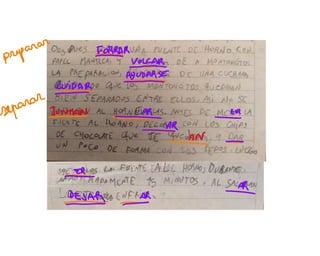 preparar
separar
DESPUES FORRAR UNA FUENTE DE HORNO CON
PAPEL MANTECA Y VOLCAR DE A MONTONCITOS
LA PREPARACION, AYUDARSE DE UNA CUCHARA
CUIDAR QUE LOS MONTONCITOS QUEDARAN
BIEN SEPARADOS ENTRE ELLOS, ASI NO SE
AL ANTES DE METER LA
FUENTE AL HORNO, DECORAR CON LOS CHIPS
DE CHOCOLATE QUE TE Y DAR
UN POCO DE FORMA CON LOS DEDOS.
LA FUENTE AL HORNO, DURANTE
APROXIMADAMENTE 15 MINUTOS. AL SACAR
DEJAR ENFRIAR.